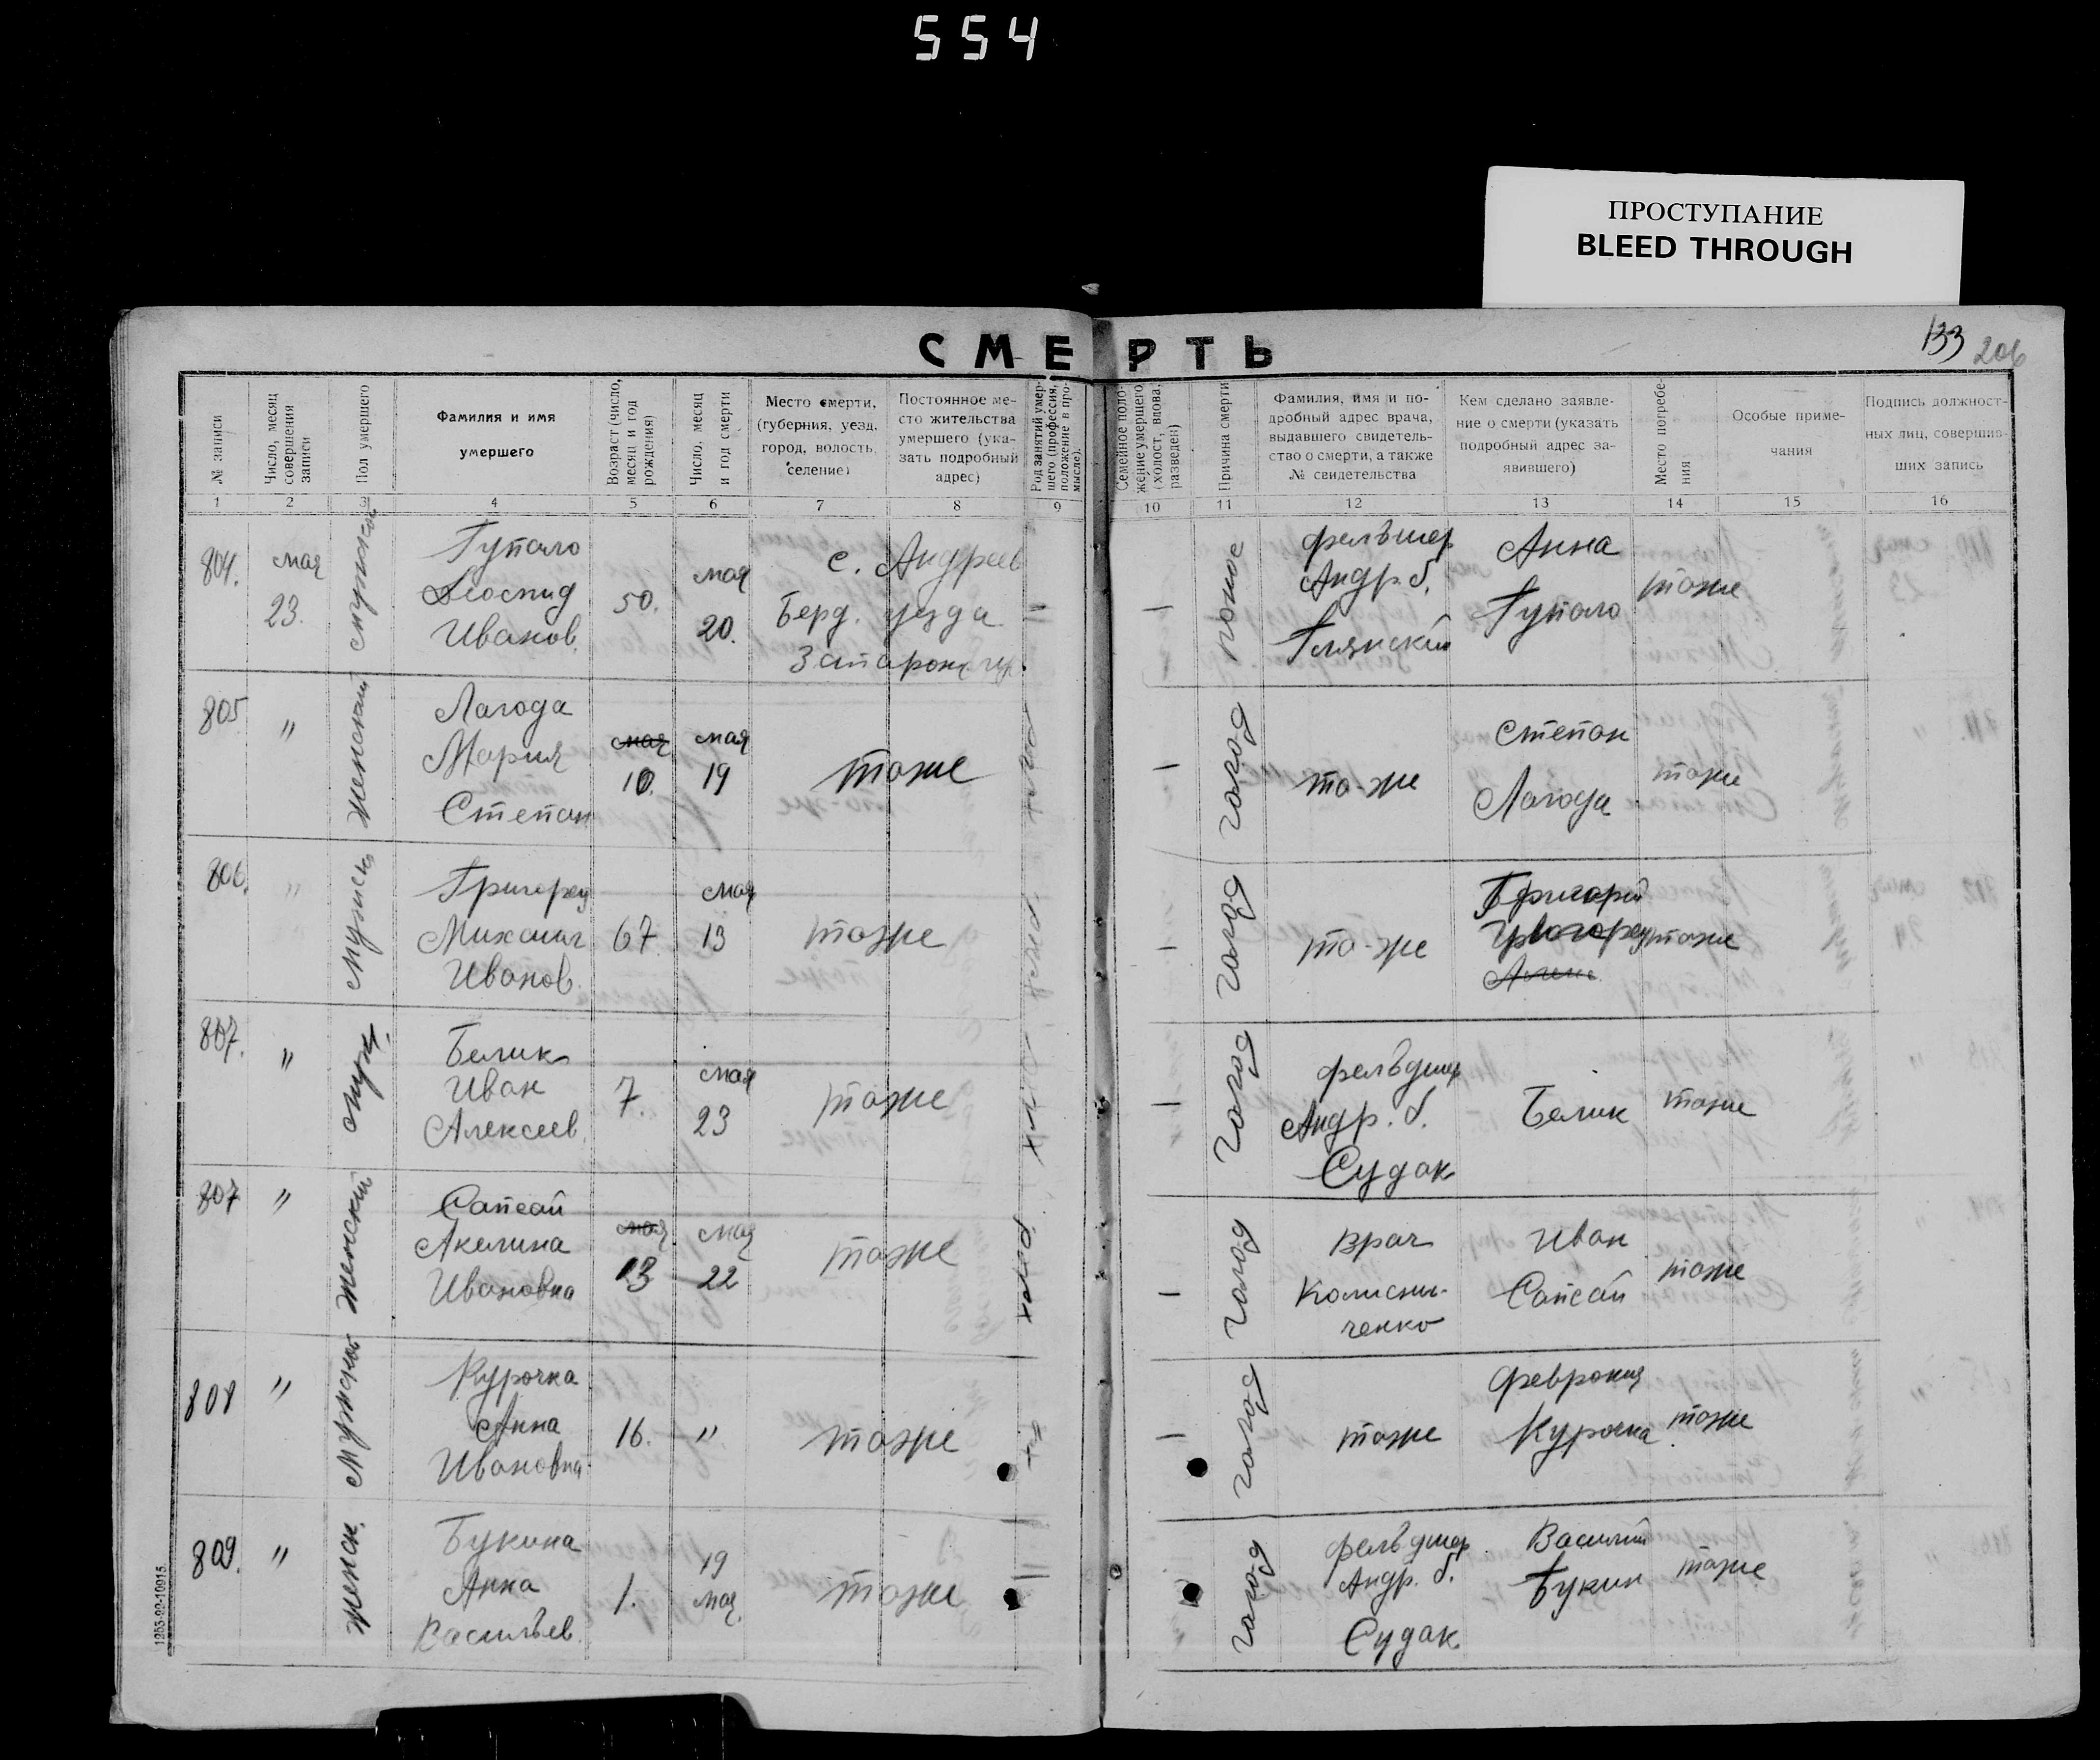 554
ПРОСТУПАНИЕ
BLEED THROUGH
СМЕРТЬ
133
206
№ записи
Число, месяц
совершения
записи
Пол умершего
Фамилия и имя
умершего
Возраст (число,
месяц и год
рождения)
Число, месяц
и год смерти
Место смерти,
(губерния, уезд,
город, волость,
селение)
Постоянное ме-
сто жительства
умершего (ука-
зать подробный
адрес)
Род занятий умер-
шего (профессия,
положение в про-
мысле).
Семейное поло-
жение умершего
(холост, вдова,
разведен)
Причина смерти
Фамилия, имя и по-
дробный адрес врача,
выдавшего свидетель-
ство о смерти, а также
№ свидетельства
Кем сделано заявле-
ние о смерти (указать
подробный адрес за-
явившего)
Место погребе-
ния
Особые приме-
чания
Подпись должност-
ных лиц, совершив-
ших запись
1 2 3 4 5 6 7 8 9 10 11 12 13 14 15 16
804.
мая
23.
мужской
Гупало
Леонид
Иванов.
50.
мая
20.
с. Андреев
Берд. уезда
Запарож. гу.
"
—
фельшер
Андр. б.
Глянский
Анна
Гупало
тоже
805
"
женский
Лагода
Мария
Степан
мая
10.
мая
19
тоже
—
голод
то-же
Степан
Лагода
тоже
806.
"
Мужск
Григорец
Михаил
Иванов.
67
мая
13
тоже
—
голод
то-же
Григорий
тоже
807.
"
муж.
Белик
Иван
Алексеев.
7.
мая
23
тоже
—
голод
фельдшер
Андр. б.
Судак
Белик
тоже
807
"
Женский
Сапсай
Акелина
Ивановна
мая
13
мая
22
тоже
—
голод
врач
Колисни-
ченко
Иван
Сапсай
тоже
808
"
Мужской
Курочка
Анна
Ивановна
16.
"
тоже
—
голод
тоже
Феврония
Курочка
тоже
809.
"
женск.
Букина
Анна
Васильев.
1.
19
мая.
тоже
"
голод
фельдшер
Андр. б.
Судак
Василий
Букин
тоже
1253-22-10915